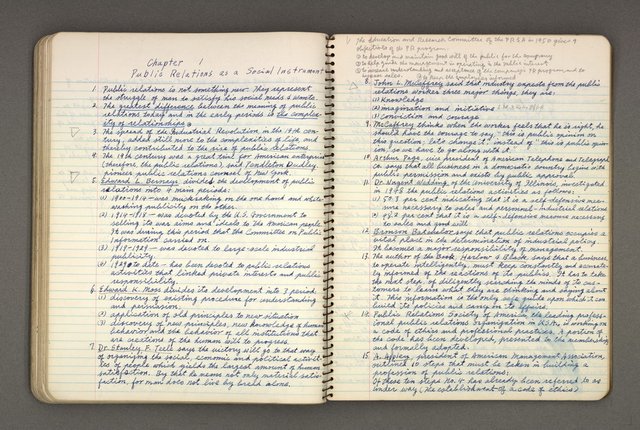 Chapter 1
Public Relations as a Social Instrument
1. Public relations is not something new. They represent
the struggle of man to satisfy his social needs & wants.
2. The greatest difference between the meaning of public
relations today and in the early periods is the complex-
ity of relationships.
3. The spread of the Industrial Revolution in the 19th cen-
tury, added still more to the complexities of life, and
thereby contributed to the pace of public relations.
4. The 19th century was a great trial for American enterprise
(therefore the public relations), said Pendleton Dudley,
pioneer public relations counsel of New York.
5. Edward L. Bernays divided the development of public
relations into 4 main periods:
(1) 1900-1914 — was muckraking on the one hand and white
washing publicity on the other.
(2) 1914-1918 — was devoted by the U.S. Government to
selling its war aims and ideals to the American people.
PR was during this period that the Committee on Public
Information carried on.
(3) 1919-1929 — was devoted to large-scale industrial
publicity.
(4) 1929 to date — has been devoted to public relations
activities that linked private interests and public
responsibility.
6. Edward K. Moss divides its development into 3 period.
(1) discovery of existing procedure for understanding
and permission.
(2) application of old principles to new situation
(3) discovery of new principles, new knowledge of human
behavior and the behavior of all institutions that
are creations of the human will to progress.
7. Dr. Stanley F. Teele says the victory will go to that way
of organizing the social, economic and political activit-
ies of people which yields the largest amount of human
satisfaction. By that he means not only material satis-
faction, for man does not live by bread alone.
The Education and Research Committee of the PRSA in 1950 give 4
objectives of the PR program
to develop and maintain good will of the public for the company
the management in operating in the public interest
to increase understanding and acceptance of the company's PR program, and to
keep the employees informed
8. John L. McCaffrey said that industry expects from the public
relations worker three major things, they are:
(1) Knowledge
(2) imagination and initiative
(3) conviction and courage
9. McCaffrey thinks when the worker feels that he is right, he
should have the courage to say "this is public opinion on
this question; let's change it", instead of "this is public opin-
ion, so we have to go along with it".
10. Arthur Page, vice president of American Telephone and Telegraph
Co. says that all business in a democratic country begins with
public permission and exists by public approval.
11. Dr. Nugent Wedding, of the University of Illinois, investigated
in 1948 the public relations activities as follows:
(1) 50.3 per cent indicating that it is a self-defensive mea-
sure necessary to sales and personnel-industrial relations
(2) 48.2 per cent that it is self-defensive measure necessary
to sales and good will
12. Bronson Batchelor, says that public relations occupies a
vital place in the determination of industrial policy.
It becomes a major responsibility of management.
13. The author of the book, Harlow & Black says that a business,
to operate intelligently, must keep constantly and accurate-
ly informed of the reactions of its publics. It has to take
the next step, of diligently searching the minds of its cus-
tomers to learn what they are thinking and saying about
it. This information is the only safe guide upon which it can
build its policies and carry on its affairs.
14. Public Relations Society of America, the leading profess-
ional public relations organization in USA, is working on
a code of ethics and professional practices, a portion of
the code has been developed, presented to the membership
and formally adopted.
15. A. Appley, president of American Management Association,
outlined 10 steps that must be taken in building a
profession of public relations:
Of these ten steps No. 4 has already been referred to as
under way (the establishment of a code of ethics)